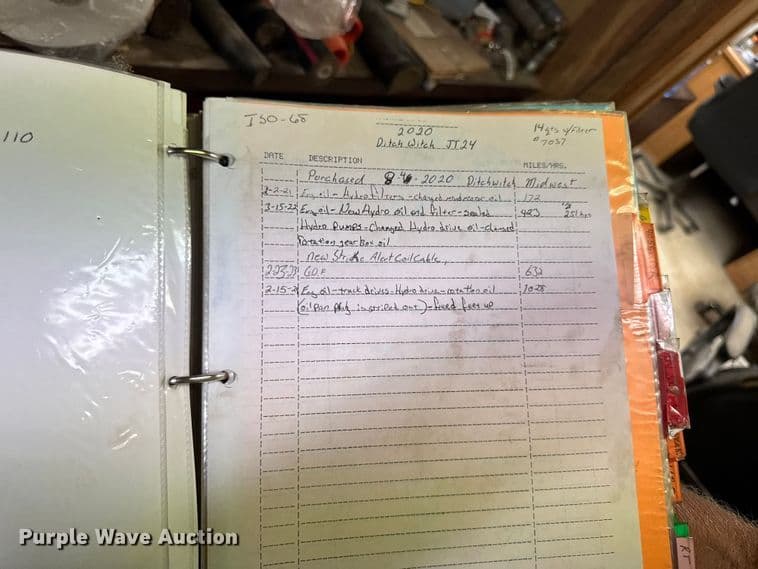 110
ISO-68
2020
Ditch Witch JT24
14 qts w/Filter
# 7037
DATE DESCRIPTION MILES/HRS.
Purchased 8 2020 Ditchwitch Midwest
2-2-21 Eng oil - Hydro filters - changed oil 172
3-15-22 Eng oil - New Hydro oil and filter - sealed 423 251 hrs
Hydro Pumps - Changed Hydro drive oil - changed
Rotation gear box oil
New Strike Alert Coil Cable,
2-23-23 G.O.F 632
2-15-2 Eng oil - track drives - Hydro drive - rotation oil 1028
(oil pan plug is striped out) - fixed
Purple Wave Auction
RT